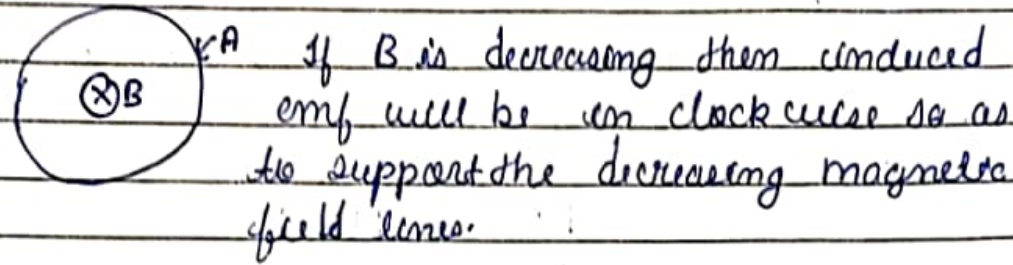 A If B is decreasing then induced
⊗B emf will be in clock wise so as
to support the decreasing magnetic
field lines.